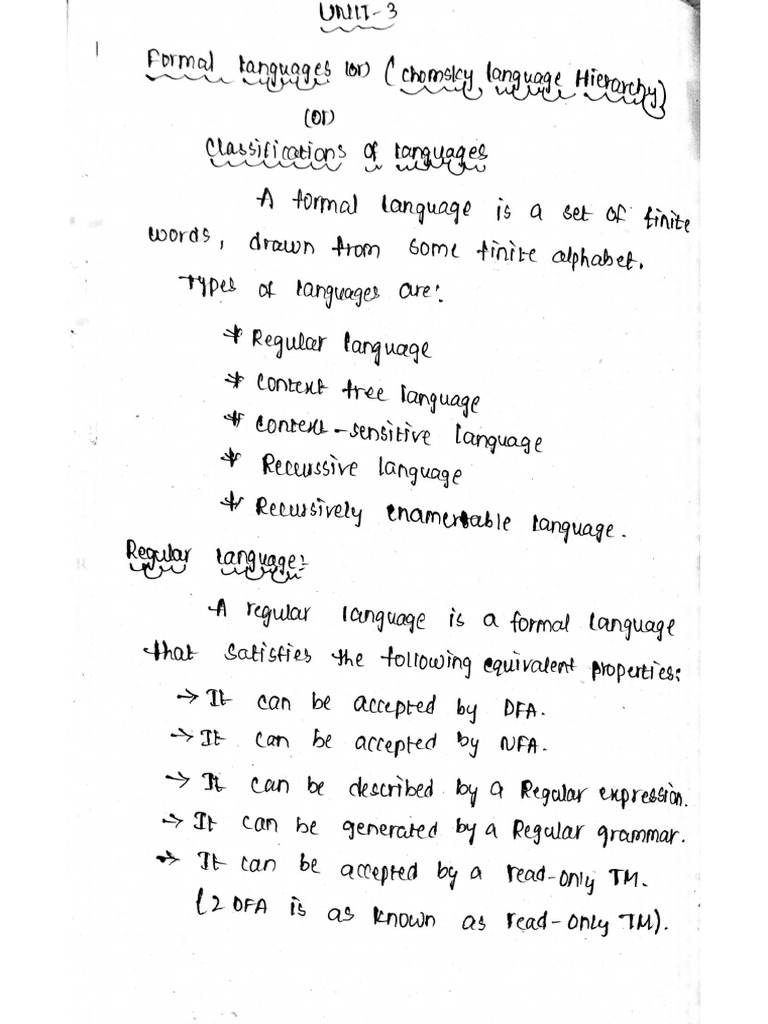 UNIT-3
1
Formal languages (or) (chomsky language Hierarchy)
(or)
Classifications of languages
A formal language is a set of finite
words, drawn from some finite alphabet.
Types of languages are:
* Regular language
* Context free language
* Context-sensitive language
* Recussive language
* Recussively enamerable language.
Regular language:-
A regular language is a formal language
that satisfies the following equivalent properties:
→ It can be accepted by DFA.
→ It can be accepted by NFA.
→ It can be described by a Regular expression.
→ It can be generated by a Regular grammar.
→ It can be accepted by a read-only TM.
(2 DFA is as known as read-only TM).